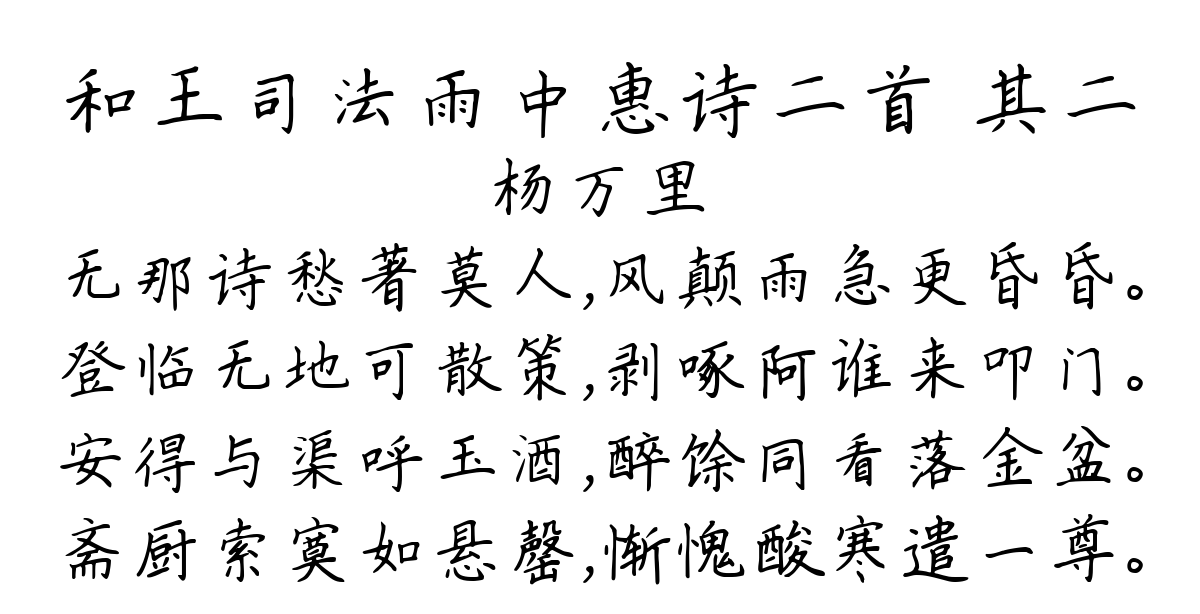 和王司法雨中惠诗二首 其二
杨万里
无那诗愁著莫人,风颠雨急更昏昏。
登临无地可散策,剥啄阿谁来叩门。
安得与渠呼玉酒,醉馀同看落金盆。
斋厨索寞如悬罄,惭愧酸寒遣一尊。